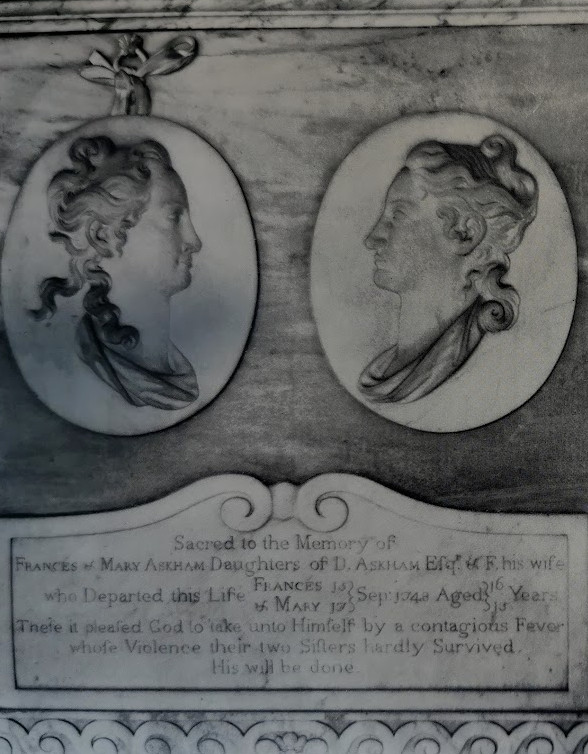 Sacred to the Memory of
FRANCES & MARY ASKHAM Daughters of D. ASKHAM Esqr. & F. his wife
who Departed this Life FRANCES 15 & MARY 17 } Sep: 1748 Aged } 16 15 Years
These it pleased God to take unto Himself by a contagious Fever
whose Violence their two Sisters hardly Survived.
His will be done.